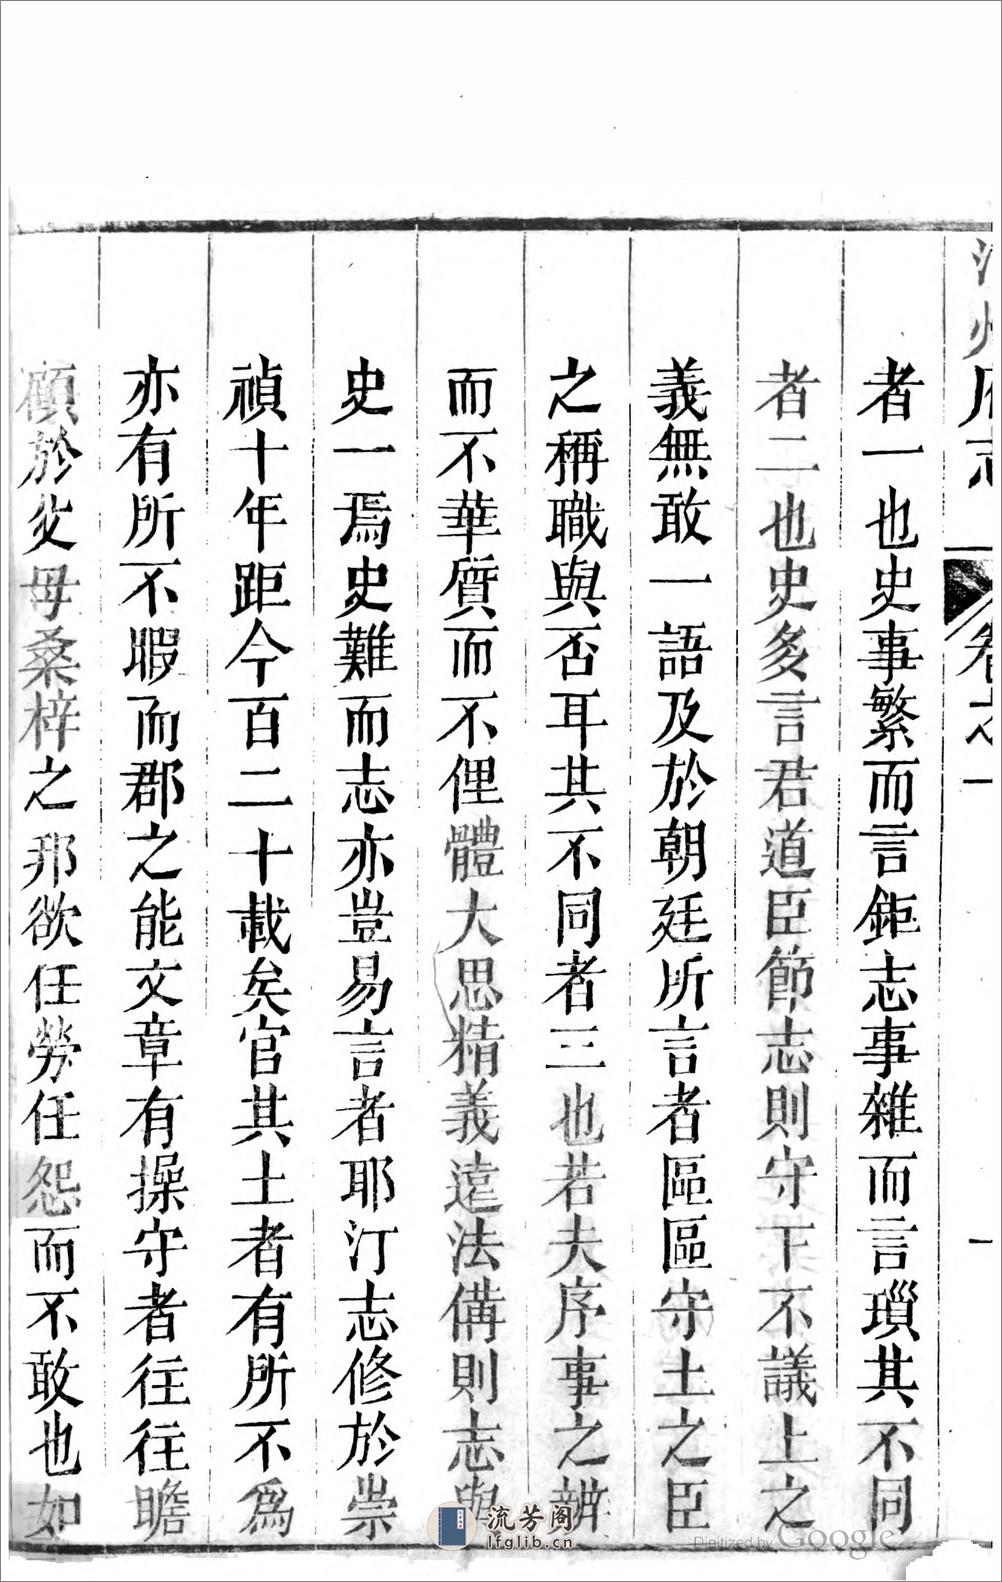 汀州府志 卷之一 一
者一也史事繁而言鉅志事雜而言瑣其不同
者二也史多言君道臣節志則守下不議上之
義無敢一語及於朝廷所言者區區守土之臣
之稱職與否耳其不同者三也若夫序事之辨
而不華質而不俚體大思精義遠法備則志與
史一焉史難而志亦豈易言者耶汀志修於崇
禎十年距今百二十載矣官其土者有所不為
亦有所不暇而郡之能文章有操守者往往瞻
顧於父母桑梓之邦欲任勞任怨而不敢也如
流芳阁
lfglib.cn
Digitized by Google